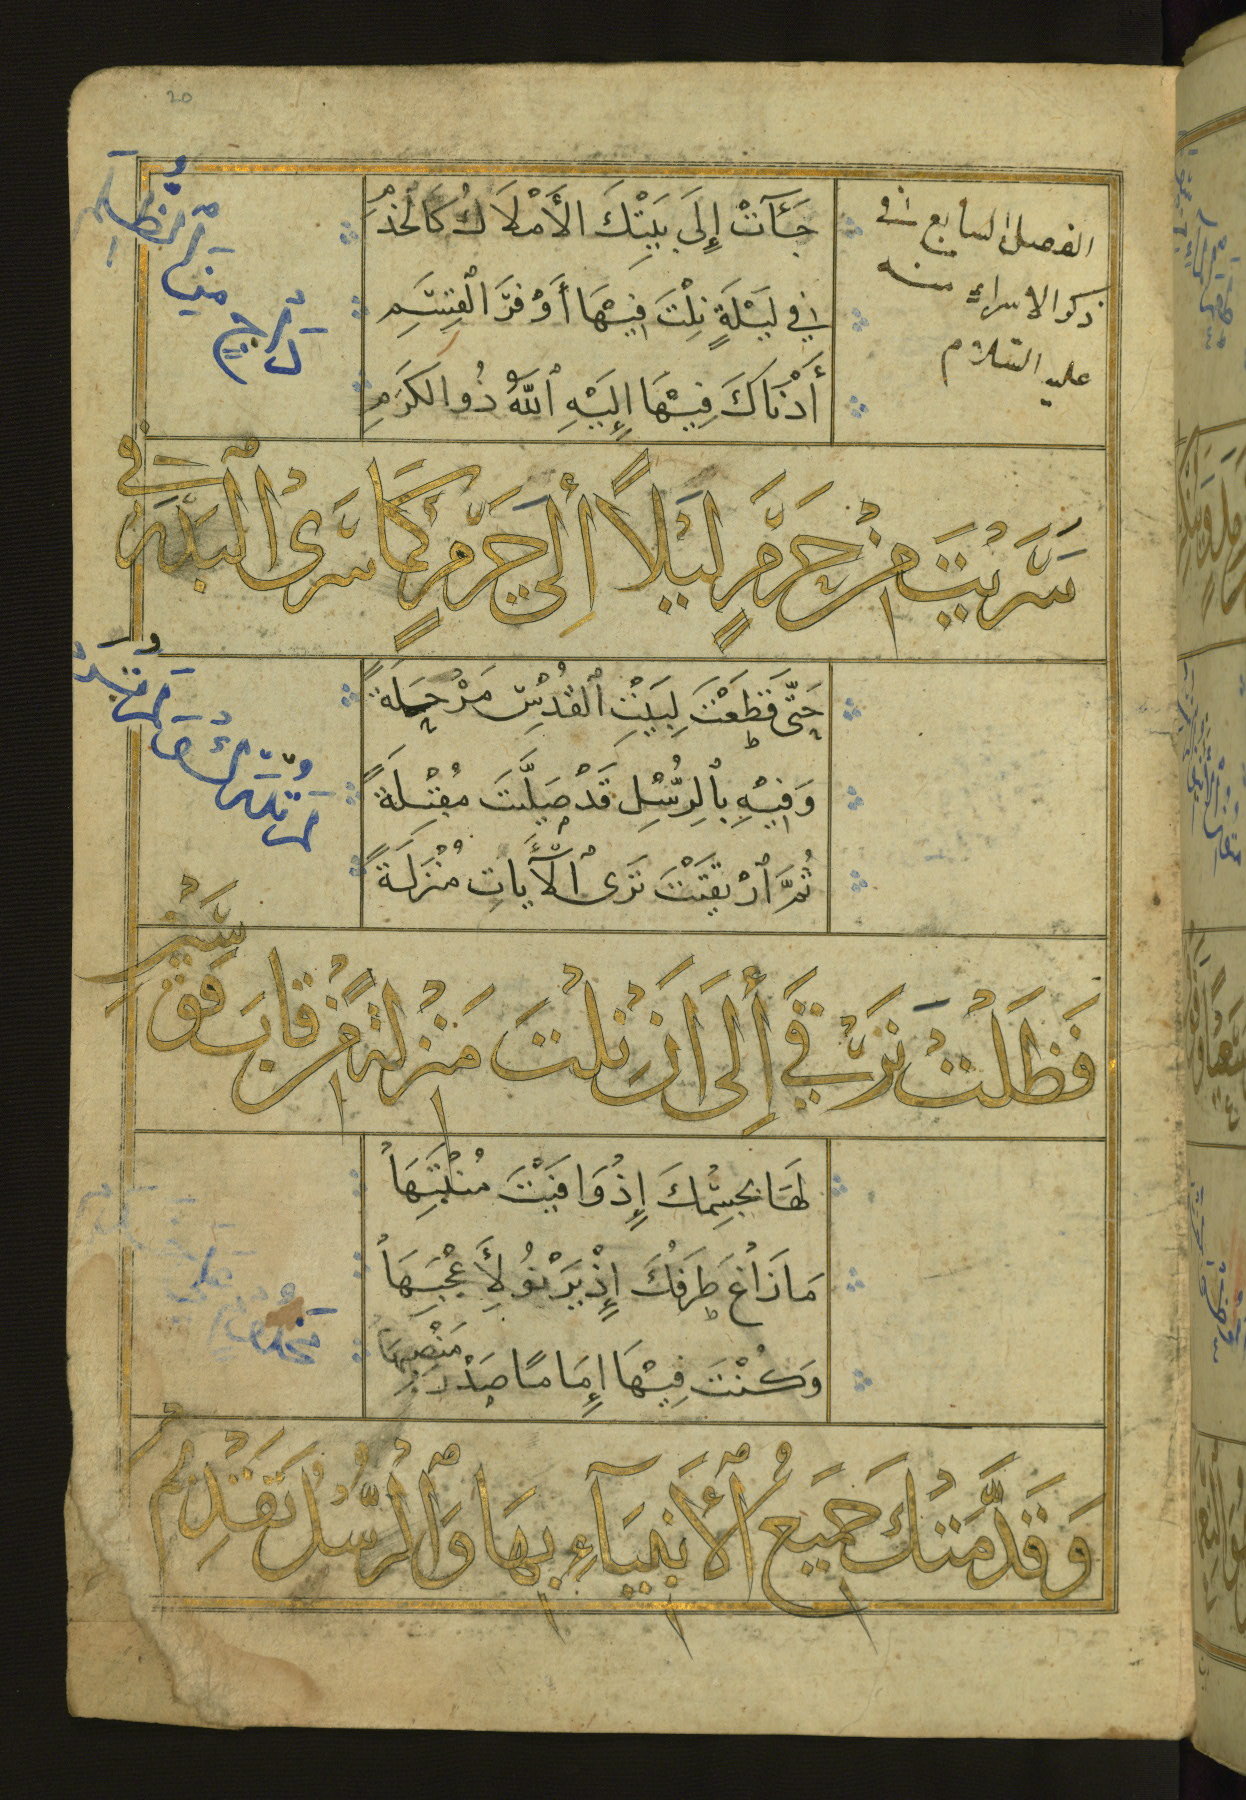 20
الفصل السابع في
ذكر الاسراء منه
عليه السلام
جَآءَتْ إِلَى بَيْتِكَ الأَمْلَاكُ كَالْخَدَمِ
فِي لَيْلَةٍ نِلْتَ فِيْهَا أَوْفَرَ الْقِسَمِ
أَدْنَاكَ فِيْهَا إِلَيْهِ ٱللَّهُ ذُو الكَرَمِ
سَرَيْتَ مِنْ حَرَمٍ لَيْلاً إِلَى حَرَمٍ كَمَا سَرَى ٱلْبَدْرُ فِي
دَاجٍ مِنَ ٱلظُّلَمِ
حَتَّى قَطَعْتَ لِبَيْتِ ٱلْقُدْسِ مَرْحَلَةً
وَفِيْهِ بِٱلرُّسْلِ قَدْ صَلَّيْتَ مُقْبِلَةً
ثُمَّ ٱرْتَقَيْتَ تَرَى ٱلْآيَاتِ مُنْزَلَةً
فَظَلْتَ تَرْقَى إِلَى اَنْ نِلْتَ مَنْزِلَةً مِنْ قَابَ قَوْسَيْنِ
لَمْ تُدْرَكْ وَلَمْ تُرَمِ
لَهَا بِجِسْمِكَ إِذْ وَافَيْتَ مُنْتَبِهَا
مَا زَاْغَ طَرْفُكَ إِذْ يَرْنُو لِأَعْجَبِهَا
وَكُنْتَ فِيْهَا إِمَامًا صَدْرَ مَنْصِبِهَا
وَقَدَّمَتْكَ جَمِيْعُ ٱلْأَنْبِيَآءِ بِهَا وَٱلرُّسْلِ تَقْدِيْمَ
مَخْدُوْمٍ عَلَى